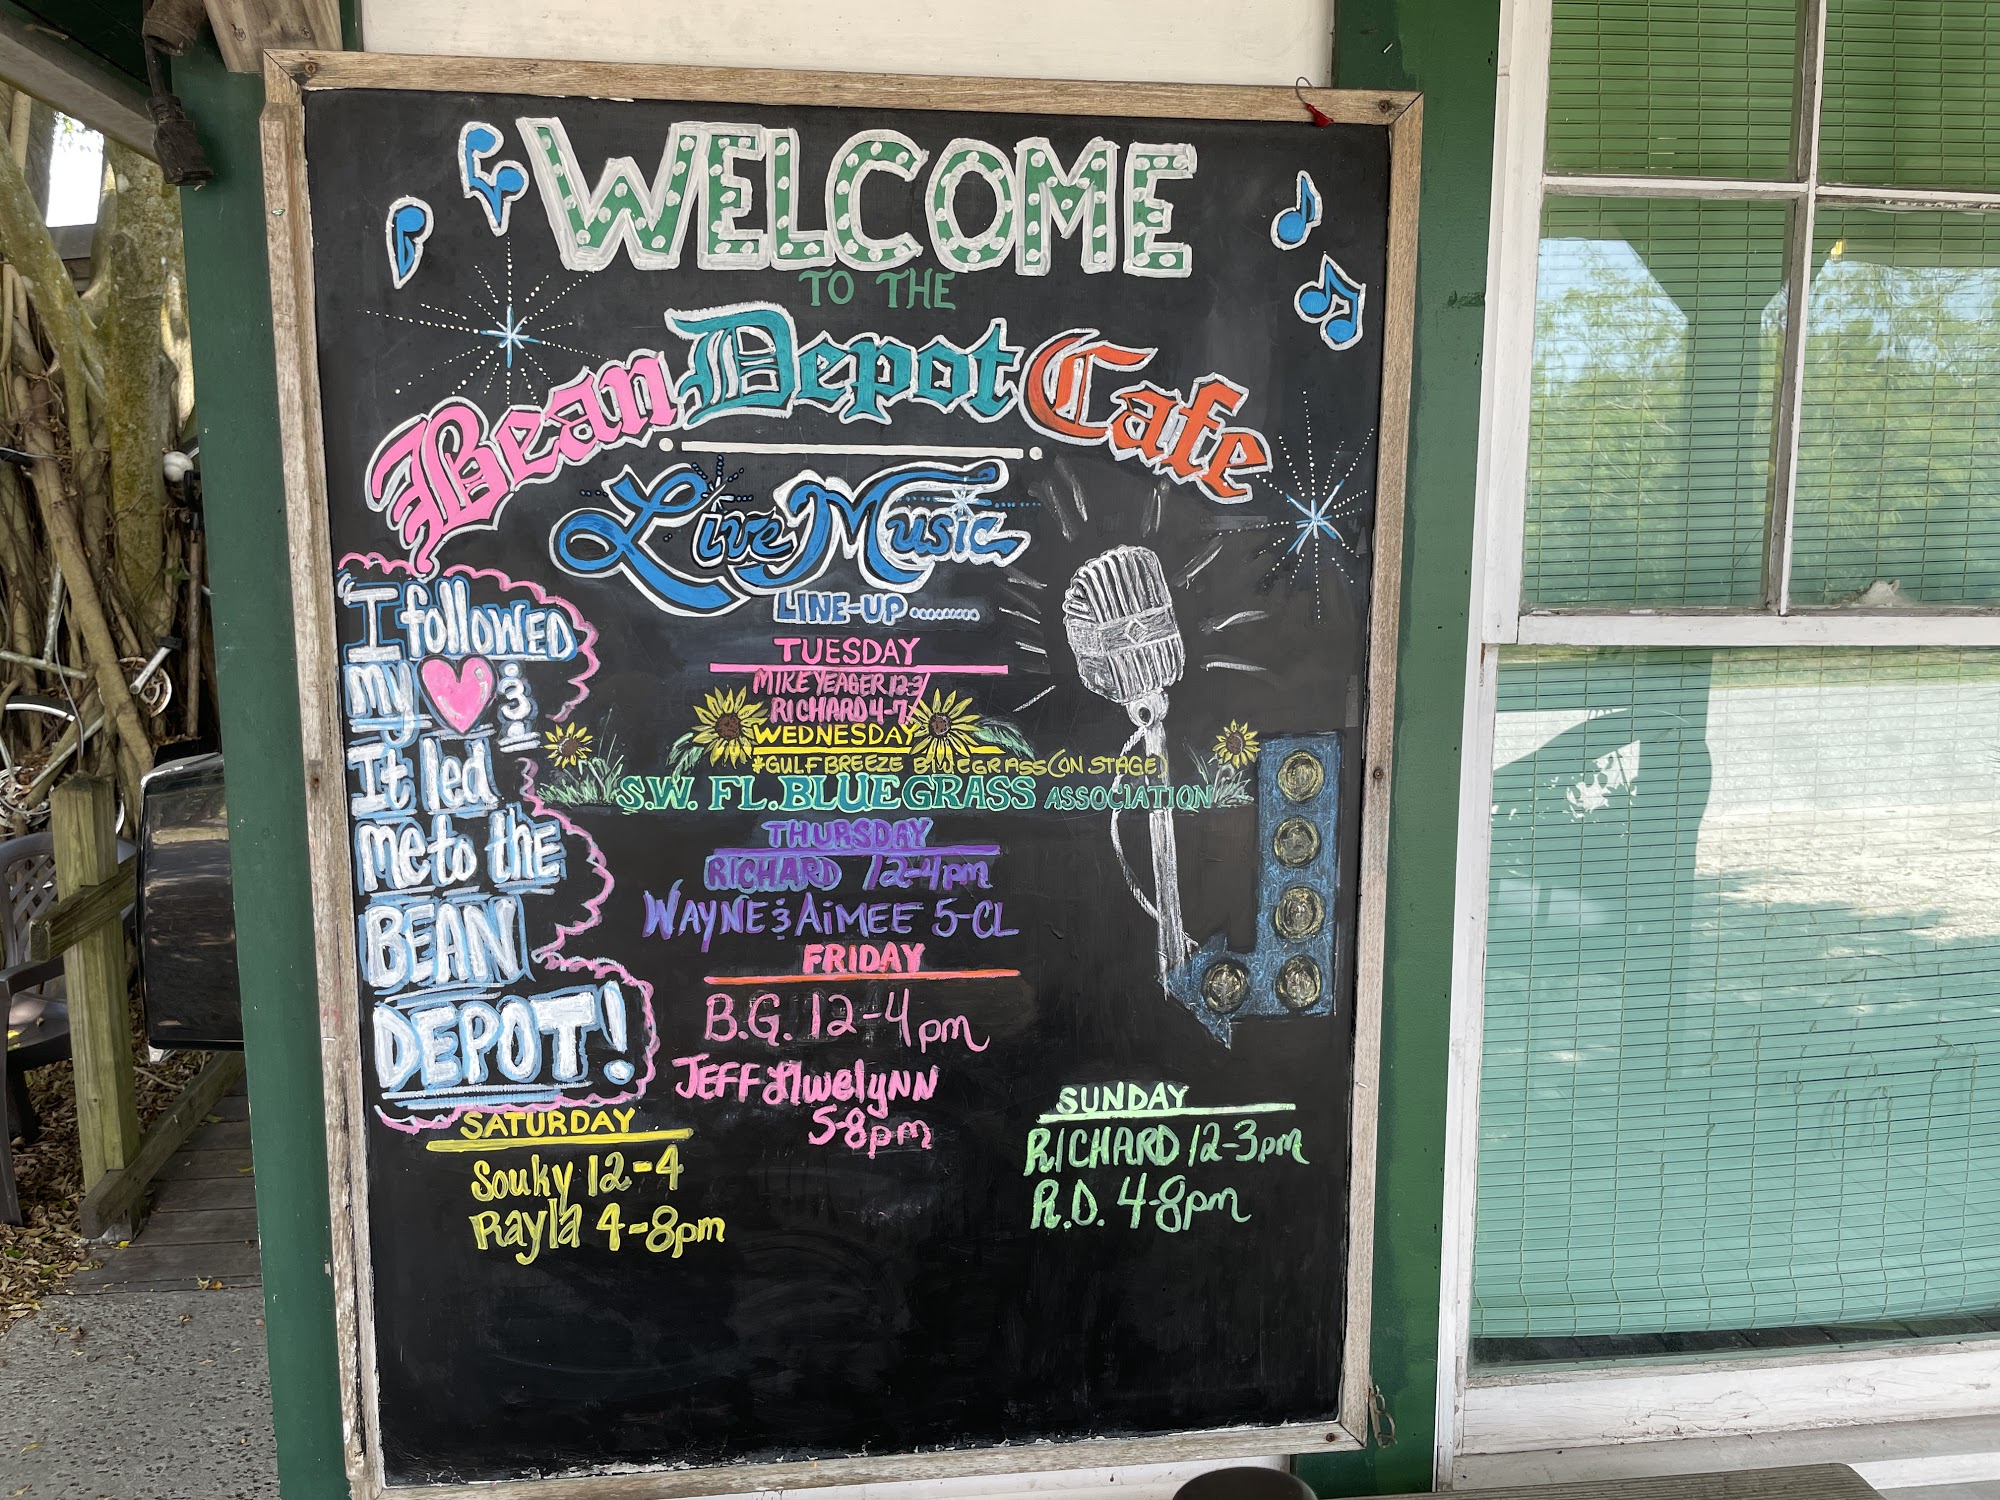 WELCOME
TO THE
Bean Depot Cafe
Live Music
LINE-UP.........
I followed
my &
It led
me to the
BEAN
DEPOT!
TUESDAY
MIKE YEAGER 12-3
RICHARD 4-7
WEDNESDAY
#GULF BREEZE BLUEGRASS (ON STAGE)
S.W. FL. BLUEGRASS ASSOCIATION
THURSDAY
RICHARD 12-4pm
WAYNE & AiMEE 5-CL
FRIDAY
B.G. 12-4pm
JEFF LlwelyNN
5-8pm
SATURDAY
Souky 12-4
Rayla 4-8pm
SUNDAY
RICHARD 12-3pm
R.D. 4-8pm